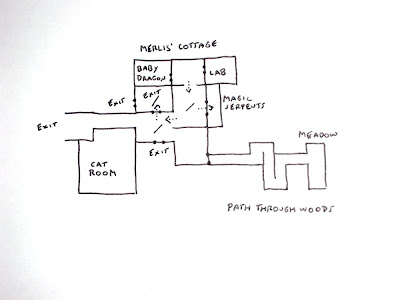 MERLIS' COTTAGE
BABY
DRAGON
LAB
EXIT
EXIT
MAGIC
SERPENTS
EXIT
MEADOW
EXIT
CAT
ROOM
PATH THROUGH WOODS